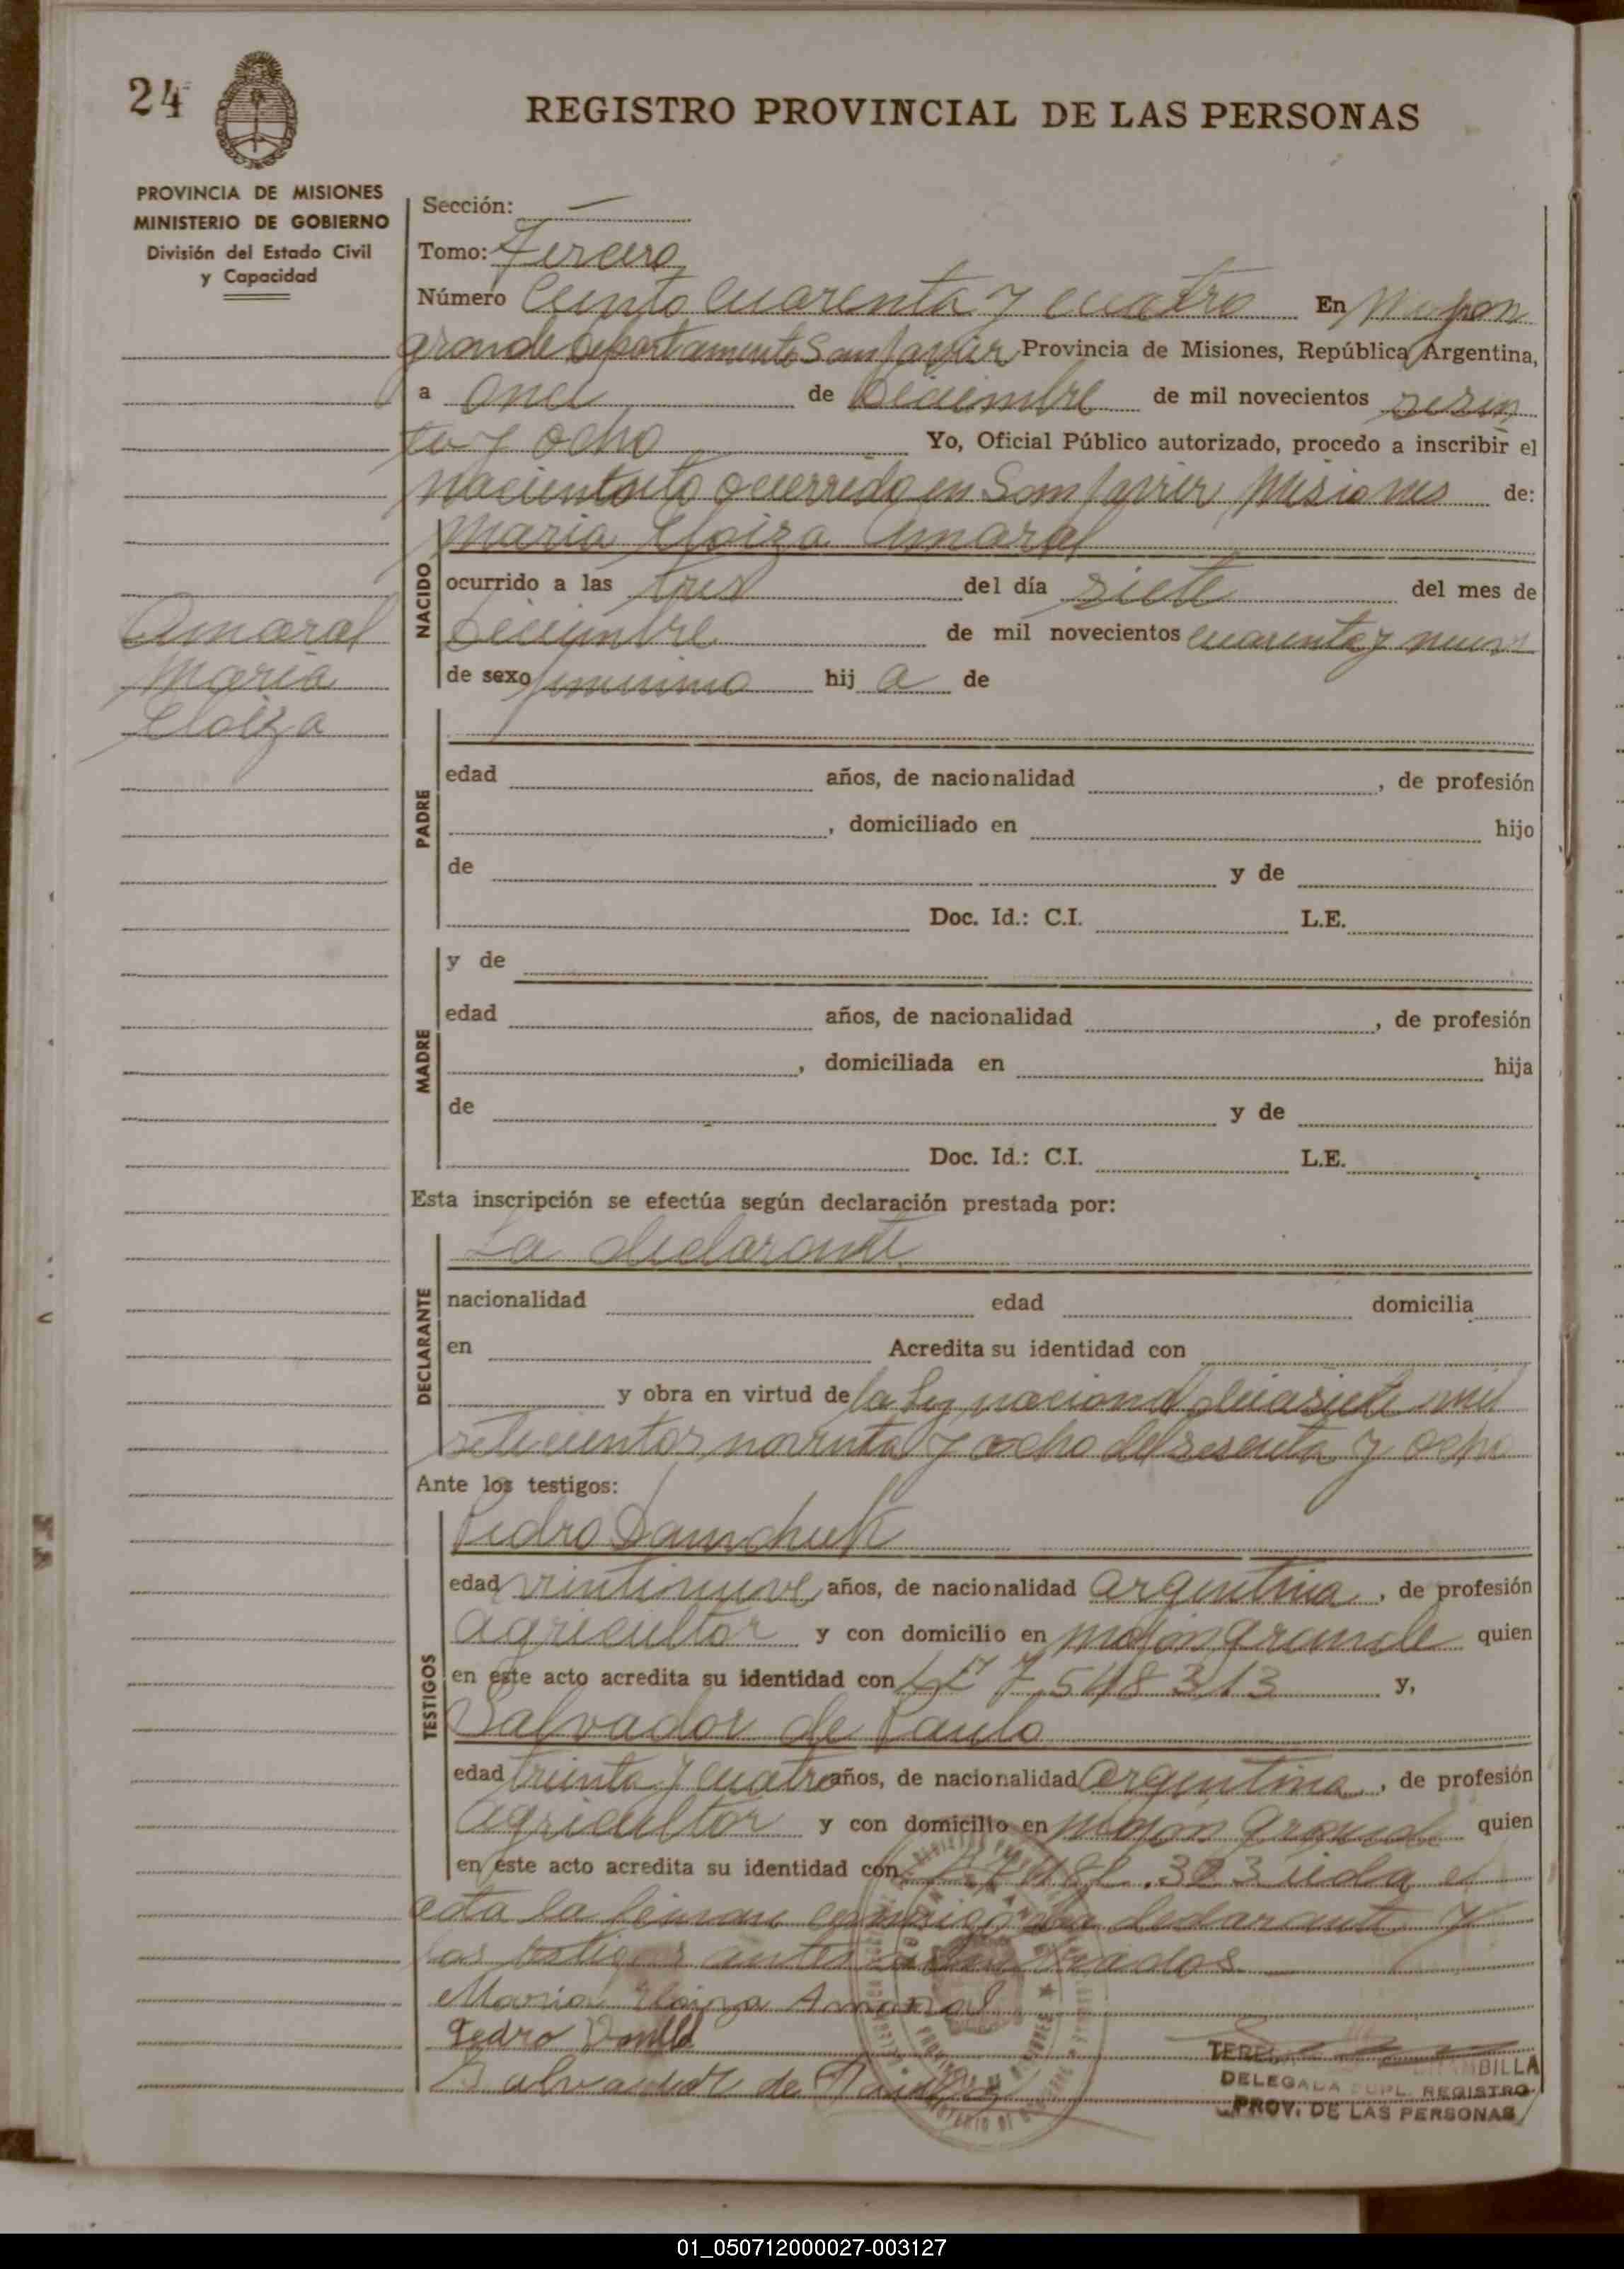 24
REGISTRO PROVINCIAL DE LAS PERSONAS
PROVINCIA DE MISIONES
MINISTERIO DE GOBIERNO
División del Estado Civil
y Capacidad
Sección: —
Tomo: Tercero
Número Ciento cuarenta y cuatro En Mojon
grande Departamento San Javier Provincia de Misiones, República Argentina,
a once de Diciembre de mil novecientos sesen
ta y ocho Yo, Oficial Público autorizado, procedo a inscribir el
nacimiento ocurrido en San Javier Misiones de:
Amaral
Maria
Eloiza
NACIDO
Maria Eloiza Amaral
ocurrido a las tres del día siete del mes de
Diciembre de mil novecientos cuarenta y nueve
de sexo femenino hij a de
PADRE
edad años, de nacionalidad , de profesión
, domiciliado en hijo
de y de
Doc. Id.: C.I. L.E.
MADRE
y de
edad años, de nacionalidad , de profesión
, domiciliada en hija
de y de
Doc. Id.: C.I. L.E.
Esta inscripción se efectúa según declaración prestada por:
DECLARANTE
La declarante
nacionalidad edad domicilia
en Acredita su identidad con
y obra en virtud de la Ley nacional diecisiete mil
setecientos noventa y ocho del sesenta y ocho
Ante los testigos:
TESTIGOS
Pedro
edad veintinueve años, de nacionalidad argentina, de profesión
agricultor y con domicilio en mojon grande quien
en este acto acredita su identidad con LE 7.548313 y,
Salvador de Paula
edad treinta y cuatro años, de nacionalidad argentina, de profesión
agricultor y con domicilio en mojon grande quien
en este acto acredita su identidad con leida el
acta la firman conmigo la declarante y
los testigos antes
Maria Eloiza Amaral
Pedro
Salvador de
DELEGADA SUPL. REGISTRO
PROV. DE LAS PERSONAS
01_050712000027-003127